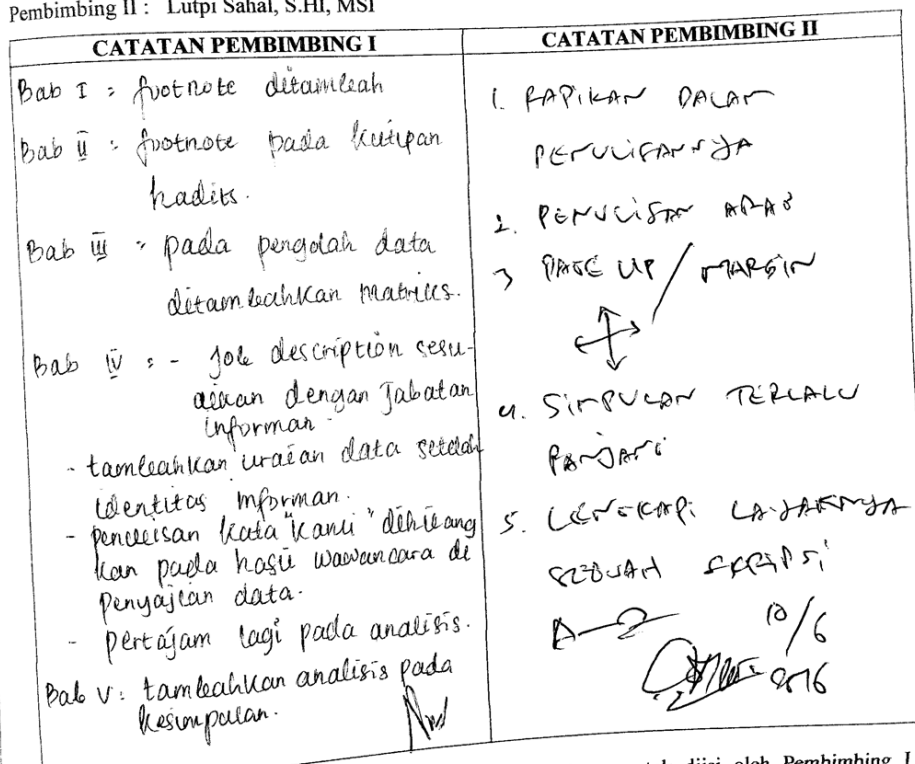 Pembimbing II : Lutpi Sahal, S.HI, MSI
CATATAN PEMBIMBING I
Bab I : footnote ditambah
Bab II : footnote pada kutipan
hadits.
Bab III : pada pengolah data
ditambahkan matriks.
Bab IV : - job description sesu-
aikan dengan Jabatan
informan
- tambahkan uraian data setelah
identitas informan.
- penulisan kata "kami" dihilang
kan pada hasil wawancara di
penyajian data.
- pertajam lagi pada analisis.
Bab V : tambahkan analisis pada
kesimpulan.
CATATAN PEMBIMBING II
1. RAPIKAN DALAM
PENULISANNYA
2. PENULISAN ARAB
3 PAGE UP / MARGIN
4. SIMPULAN TERLALU
PANJANG
5. LENGKAPI LAYAKNYA
SEBUAH SKRIPSI
A-2
10/6
2016
diisi oleh Pembimbing I